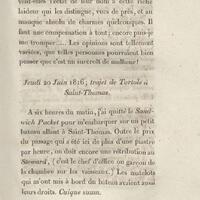 vent-elles l'éclat de leur nom à cette riche
laideur qui les distingue, vues de près, et au
masque absolu de charmes quelconques. Il
faut une compensation à tout; encore puis-je
me tromper.... Les opinions sont tellement
variées, que telles personnes pourraient bien
penser que c'est un surcroît de malheur!
Jeudi 20 Juin 1816, trajet de Tortola à
Saint-Thomas.
A six heures du matin, j'ai quitté le Sand-
wich Packet pour m'embarquer sur un petit
bateau allant à Saint-Thomas. Outre le prix
du passage qui a été ici de plus d'une piastre
par heure, on doit encore une rétribution au
Steward, (c'est le chef d'office ou garçon de
la chambre sur les vaisseaux.) Les matelots
qui m'ont mis à bord du bateau avaient aussi
leurs droits. Cuique suum.